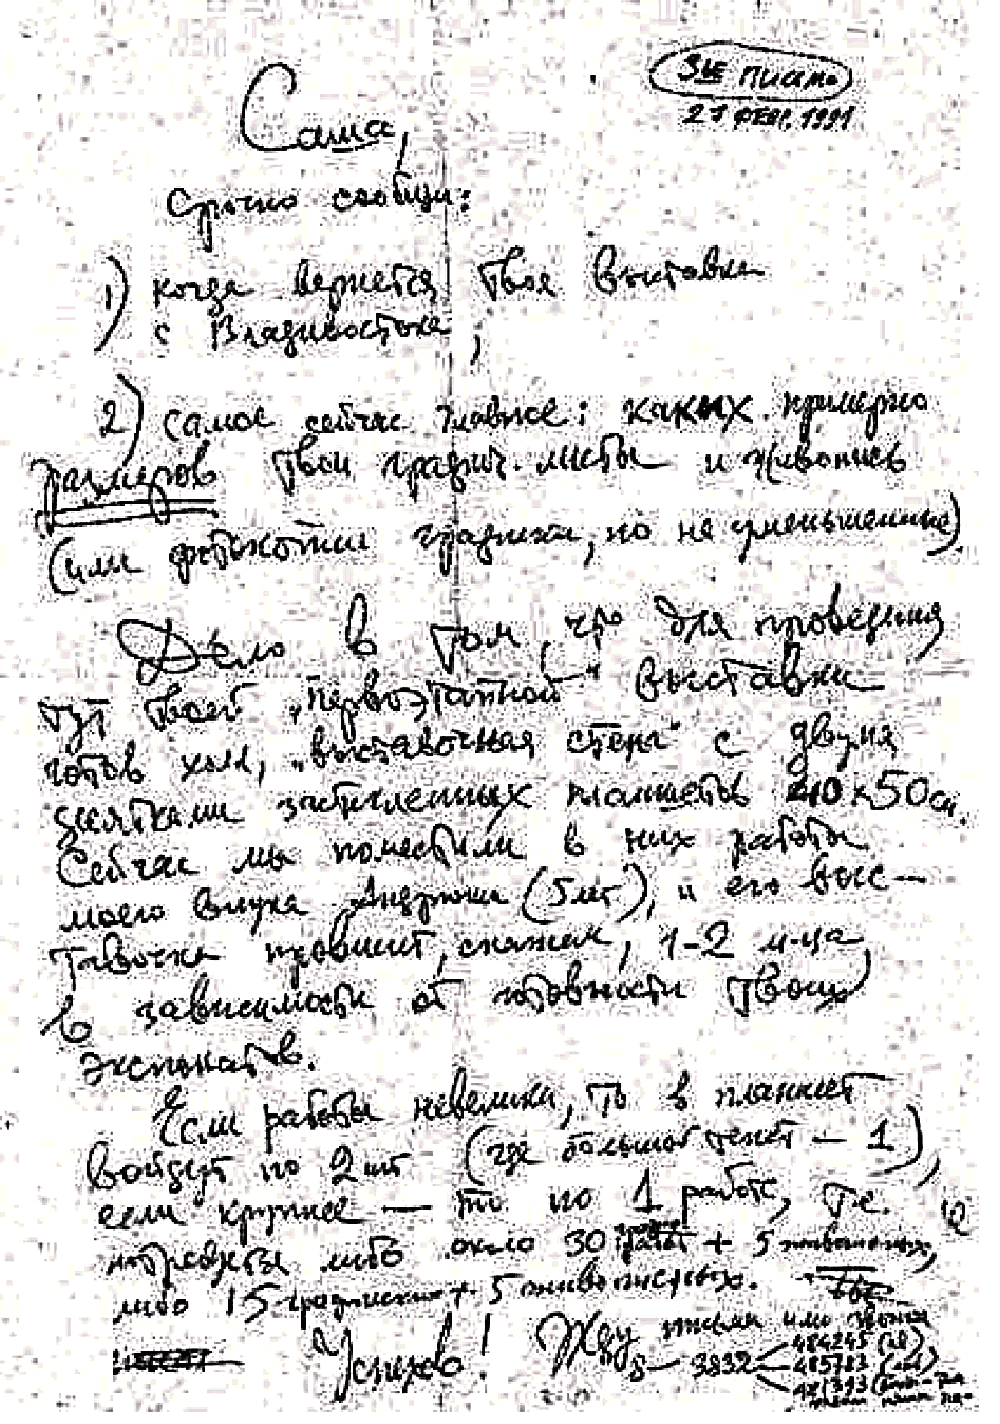 3ье письмо
27 февр. 1991
Саша,
Срочно сообщи:
1) когда вернется твоя выставка
с Владивостока,
2) самое сейчас главное: каких примерно
размеров твои графич. листы и живопись
(или фотокопии графики, но не уменьшенные).
Дело в том, что для проведения
тут твоей „первоэтапной" выставки
готов холл, „выставочная стена" с двумя
десятками застекленных планшетов 40×50 см.
Сейчас мы поместили в них работы
моего внука Андрюши (5 лет), и его выс-
тавочка провисит, скажем, 1-2 м-ца,
в зависимости от готовности твоих
экспонатов.
Если работы невелики, то в планшет
войдут по 2 шт (где большой текст — 1),
если крупнее — то по 1 работе, т.е.
потребуется либо около 30 работ + 5 живописных,
либо 15 графических + 5 живописных.
Жду письма или звонка
Успехов! 8 — 3832 — 484245
485783